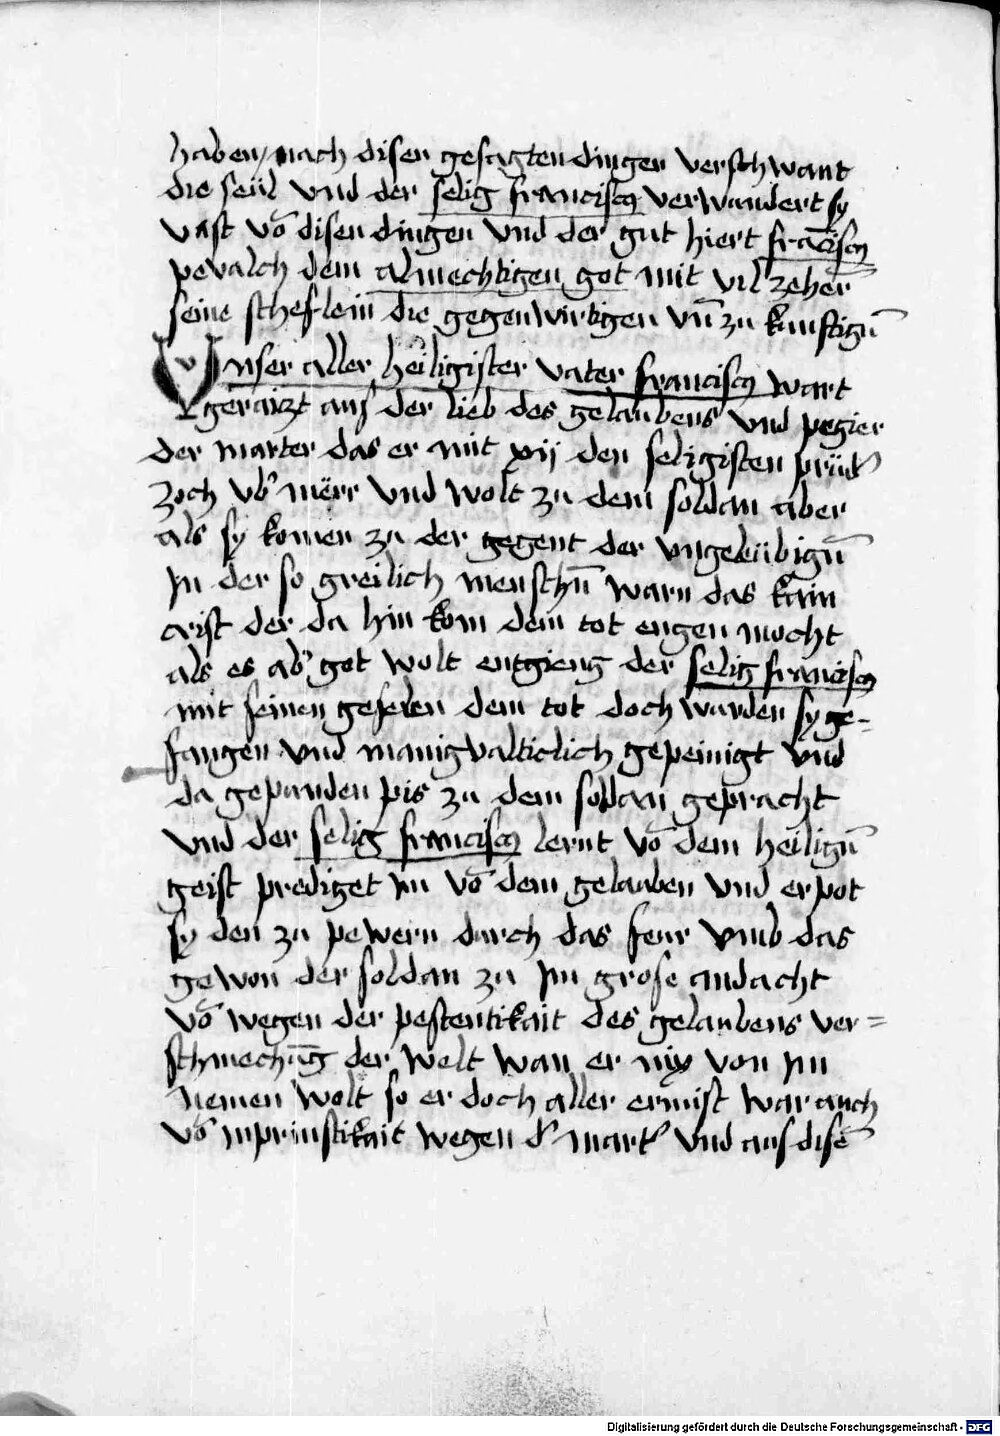 haben / nach disen gesagten dingen verschwant
die seül vnd der selig franciscꝰ verwundert sy
vast vō disen dingen vnd der gut hiert frāciscꝰ
pevalch dem almechtigen got mit vil zehern̄
seine scheflein die gegenwirtigen vn̄ zu kunftign̄
Vnser aller heiligister vater franciscꝰ wart
geraizt auſ der lieb des gelaubens vnd pegier
der marter das er mit xij den seligisten prüd'n
zoch vb' mërr vnd wolt zu dem soldan aber
als sy komen zu der gegent der vngelübign̄
jn der so greilich menschn̄ warn das kain
crist der da hin kom dem tot engen mocht
als es ab' got wolt entgieng der selig franciscꝰ
mit seinen geselen dem tot doch wurden sy ge-
fangen vnd manigvalticlich gepeinigt vnd
da gepunden pis zu dem soldan gepracht
vnd der selig franciscꝰ lernt vō dem heilign̄
geist prediget jm vō dem gelauben vnd erpot
sy den zu pewern durch das feur vmb das
gewon der soldan zu jm grose andacht
vō wegen der pestentikait des gelaubens ver=
schmechūg der welt wan er nix von jm
nemen wolt so er doch aller ermist war auch
vō jnprinstikait wegen d' mart' vnd auſ disē
Digitalisierung gefördert durch die Deutsche Forschungsgemeinschaft - DFG